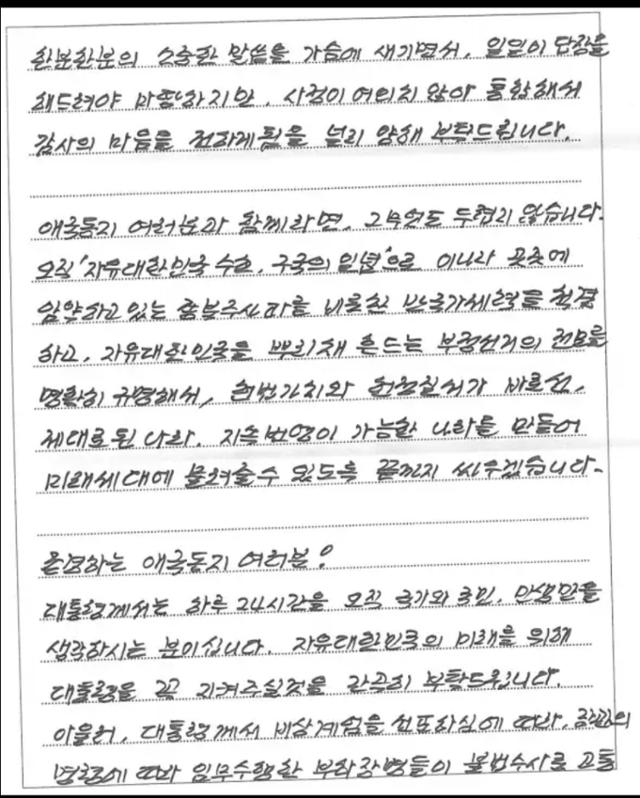 한분한분의 소중한 말씀을 가슴에 새기면서, 일일이 답장을
해드려야 마땅하지만, 사정이 여의치 않아 통합해서
감사의 마음을 전하게됨을 널리 양해 부탁드립니다.
애국동지 여러분과 함께라면, 그무엇도 두렵지 않습니다.
오직 '자유대한민국 수호, 구국의 일념'으로 이나라 곳곳에
암약하고 있는 종북주사파를 비롯한 반국가세력을 척결
하고, 자유대한민국을 뿌리채 흔드는 부정선거의 전모를
명확히 규명해서, 헌법가치와 헌정질서가 바로선,
제대로된 나라, 지속번영이 가능한 나라를 만들어
미래세대에 물려줄수 있도록 끝까지 싸우겠습니다.
존경하는 애국동지 여러분!
대통령께서는 하루 24시간을 오직 국가와 국민, 민생만을
생각하시는 분이십니다. 자유대한민국의 미래를 위해
대통령을 꼭 지켜주실것을 간곡히 부탁드립니다.
아울러, 대통령께서 비상계엄을 선포하심에 따라,
명령에 따라 임무수행한 부하장병들이 불법수사로 고통